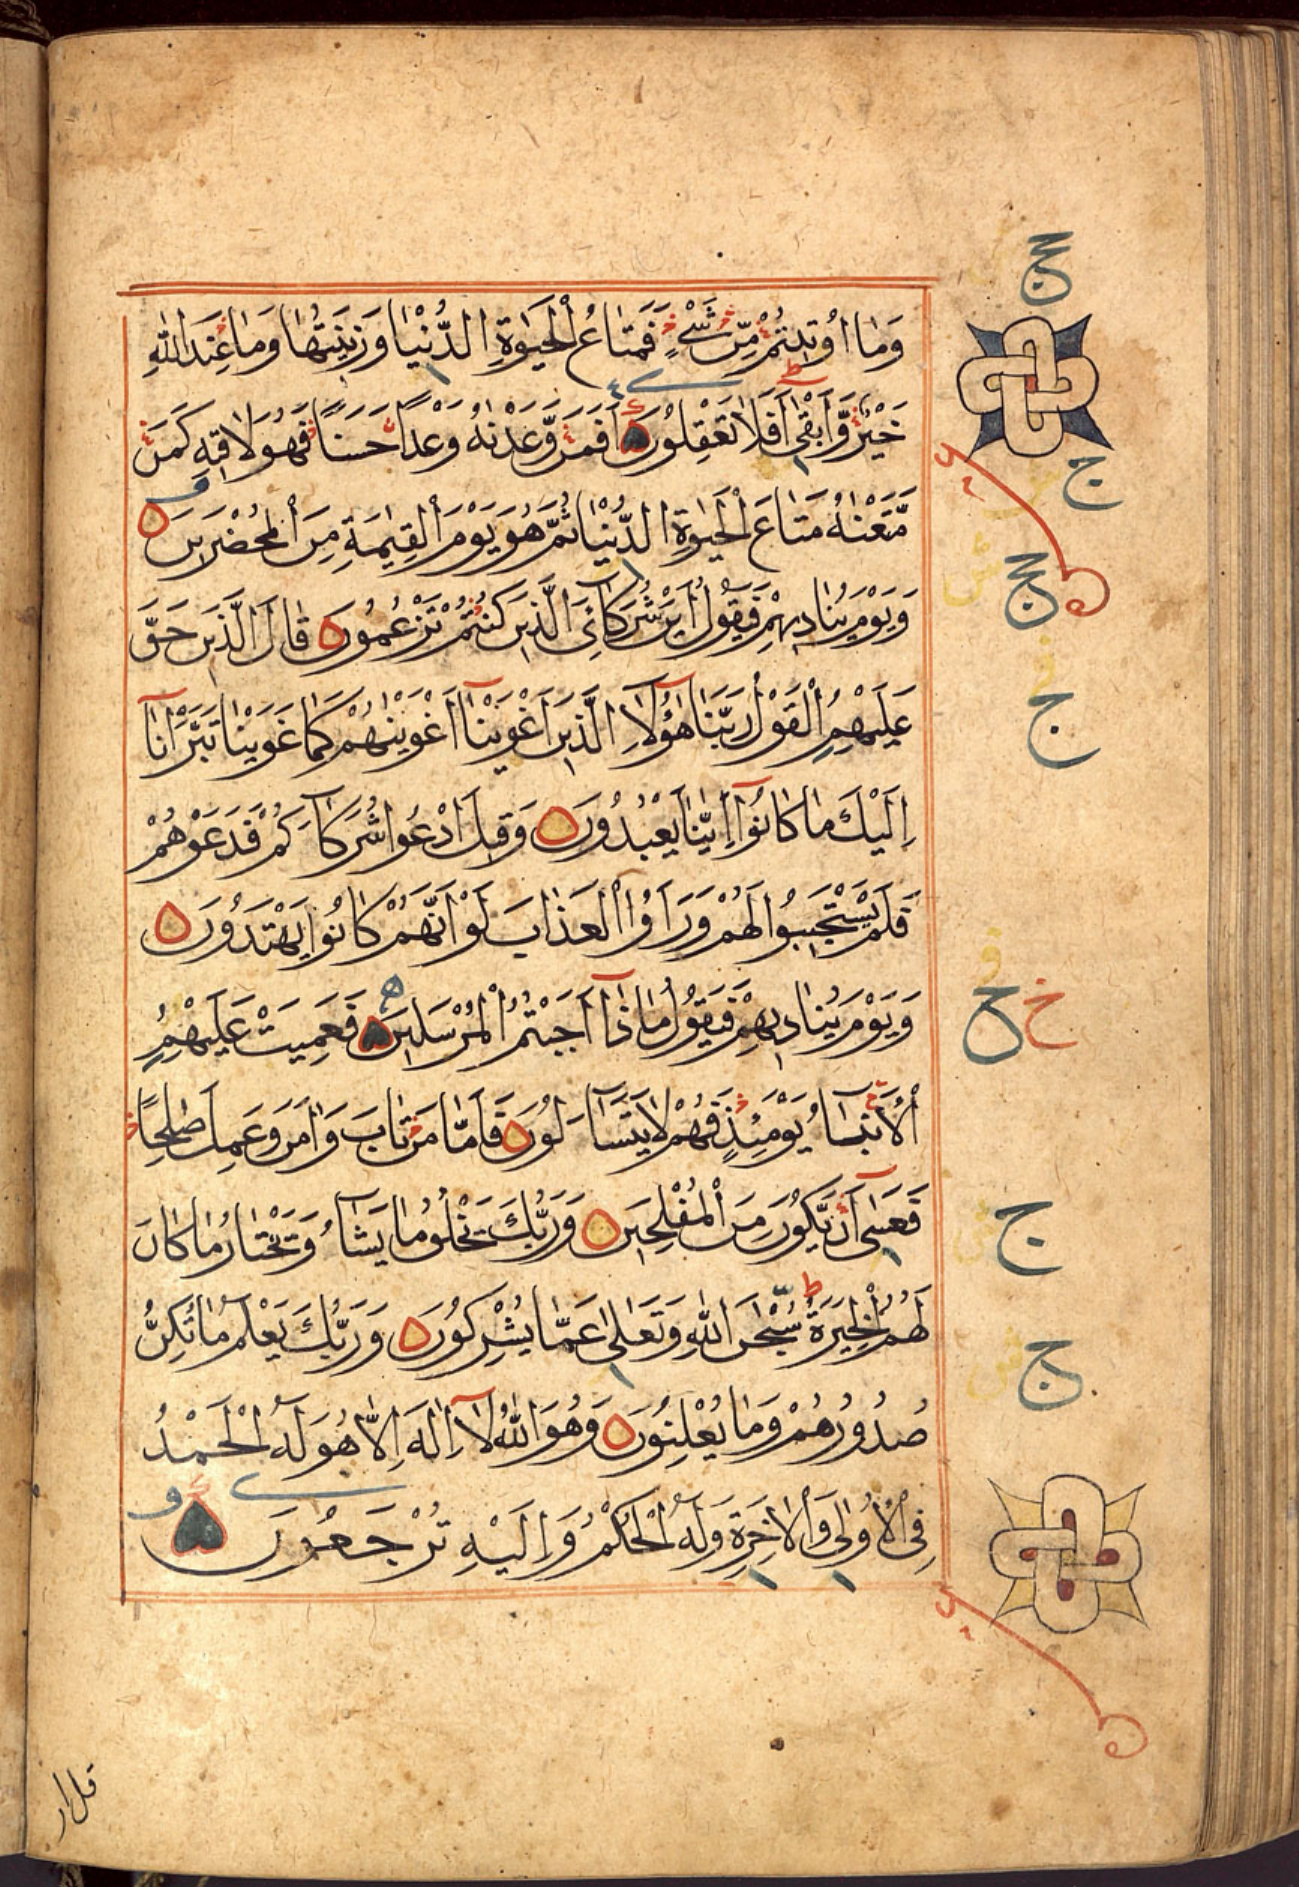 وَمَا اُوتِيتُمْ مِّنْ شَيْءٍ فَمَتَاعُ الْحَيٰوةِ الدُّنْيَا وَزِينَتُهَا وَمَا عِنْدَ اللّٰهِ
خَيْرٌ وَّاَبْقٰى اَفَلَا تَعْقِلُونَ اَفَمَنْ وَّعَدْنٰهُ وَعْدًا حَسَنًا فَهُوَ لَاقِيهِ كَمَنْ
مَّتَّعْنٰهُ مَتَاعَ الْحَيٰوةِ الدُّنْيَا ثُمَّ هُوَ يَوْمَ الْقِيٰمَةِ مِنَ الْمُحْضَرِينَ
وَيَوْمَ يُنَادِيهِمْ فَيَقُولُ اَيْنَ شُرَكَائِيَ الَّذِينَ كُنْتُمْ تَزْعُمُونَ قَالَ الَّذِينَ حَقَّ
عَلَيْهِمُ الْقَوْلُ رَبَّنَا هٰؤُلَاءِ الَّذِينَ اَغْوَيْنَا اَغْوَيْنٰهُمْ كَمَا غَوَيْنَا تَبَرَّاْنَا
اِلَيْكَ مَا كَانُوا اِيَّانَا يَعْبُدُونَ وَقِيلَ ادْعُوا شُرَكَاءَكُمْ فَدَعَوْهُمْ
فَلَمْ يَسْتَجِيبُوا لَهُمْ وَرَاَوُا الْعَذَابَ لَوْ اَنَّهُمْ كَانُوا يَهْتَدُونَ
وَيَوْمَ يُنَادِيهِمْ فَيَقُولُ مَاذَا اَجَبْتُمُ الْمُرْسَلِينَ فَعَمِيَتْ عَلَيْهِمُ
الْاَنْبَاءُ يَوْمَئِذٍ فَهُمْ لَا يَتَسَاءَلُونَ فَاَمَّا مَنْ تَابَ وَاٰمَنَ وَعَمِلَ صَالِحًا
فَعَسٰى اَنْ يَّكُونَ مِنَ الْمُفْلِحِينَ وَرَبُّكَ يَخْلُقُ مَا يَشَاءُ وَيَخْتَارُ مَا كَانَ
لَهُمُ الْخِيَرَةُ سُبْحٰنَ اللّٰهِ وَتَعَالٰى عَمَّا يُشْرِكُونَ وَرَبُّكَ يَعْلَمُ مَا تُكِنُّ
صُدُورُهُمْ وَمَا يُعْلِنُونَ وَهُوَ اللّٰهُ لَا اِلٰهَ اِلَّا هُوَ لَهُ الْحَمْدُ
فِي الْاُولٰى وَالْاٰخِرَةِ وَلَهُ الْحُكْمُ وَاِلَيْهِ تُرْجَعُونَ
قل ار